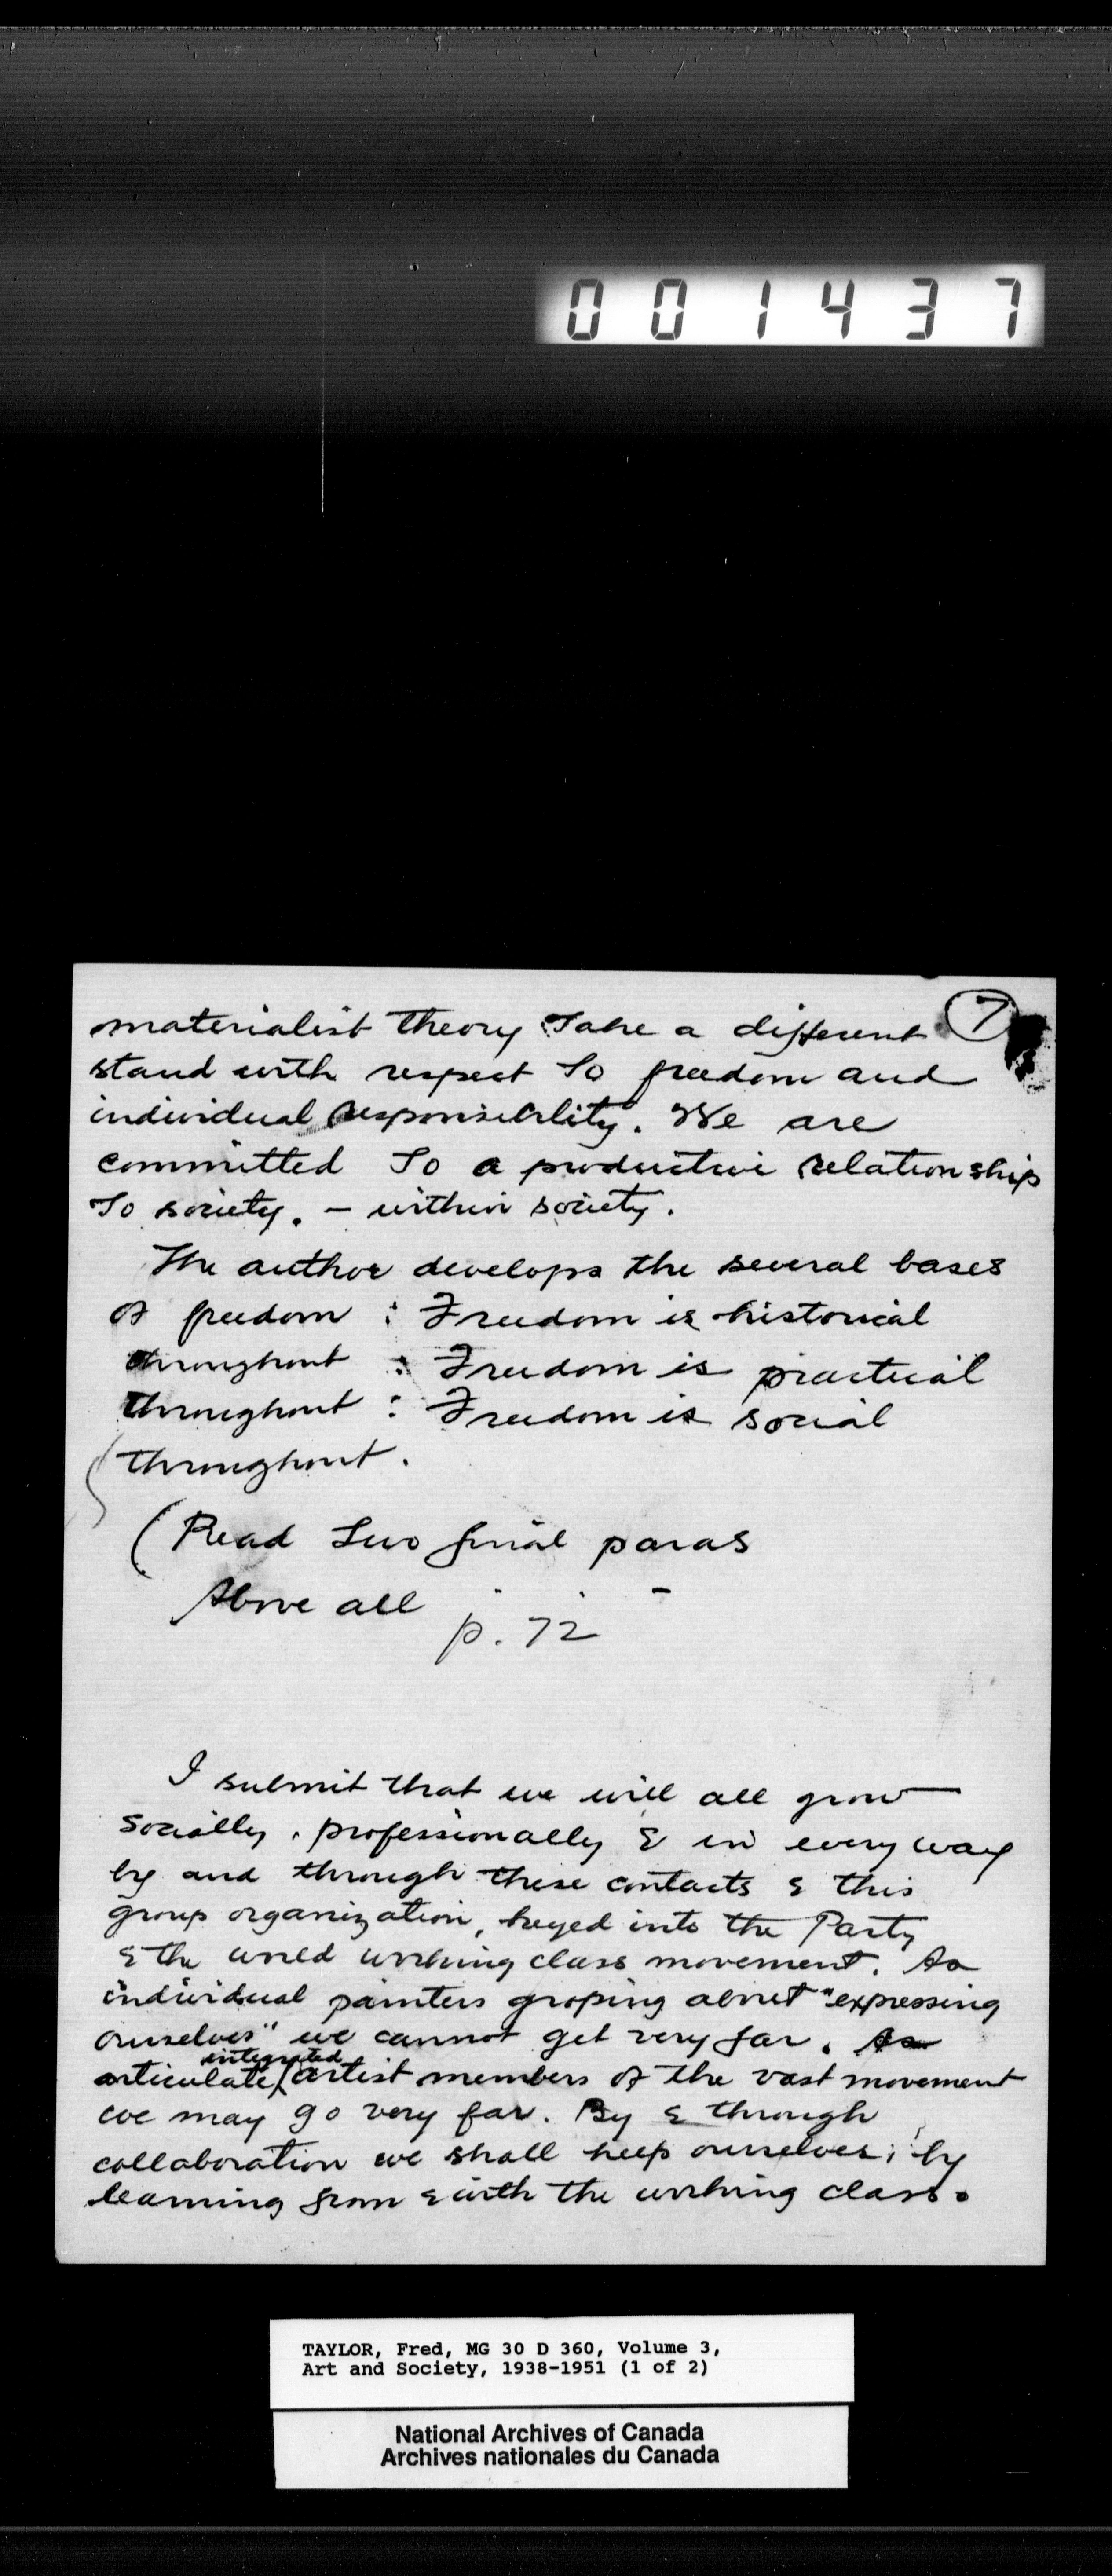 001437
7
materialist theory take a different
stand with respect to freedom and
individual responsibility. We are
committed to a productive relationship
to society. - within society.
The author develops the several bases
of freedom : Freedom is historical
throughout : Freedom is practical
throughout : Freedom is social
throughout.
(Read two final paras
Above all p. 72
I submit that we will all grow
socially, professionally & in every way
by and through these contacts & this
group organization, keyed into the Party
& the world working class movement. As
individual painters groping about "expressing
ourselves" we cannot get very far. As
integrated
articulate, artist members of the vast movement
we may go very far. By & through
collaboration we shall keep ourselves; by
learning from & with the working class.
TAYLOR, Fred, MG 30 D 360, Volume 3,
Art and Society, 1938-1951 (1 of 2)
National Archives of Canada
Archives nationales du Canada